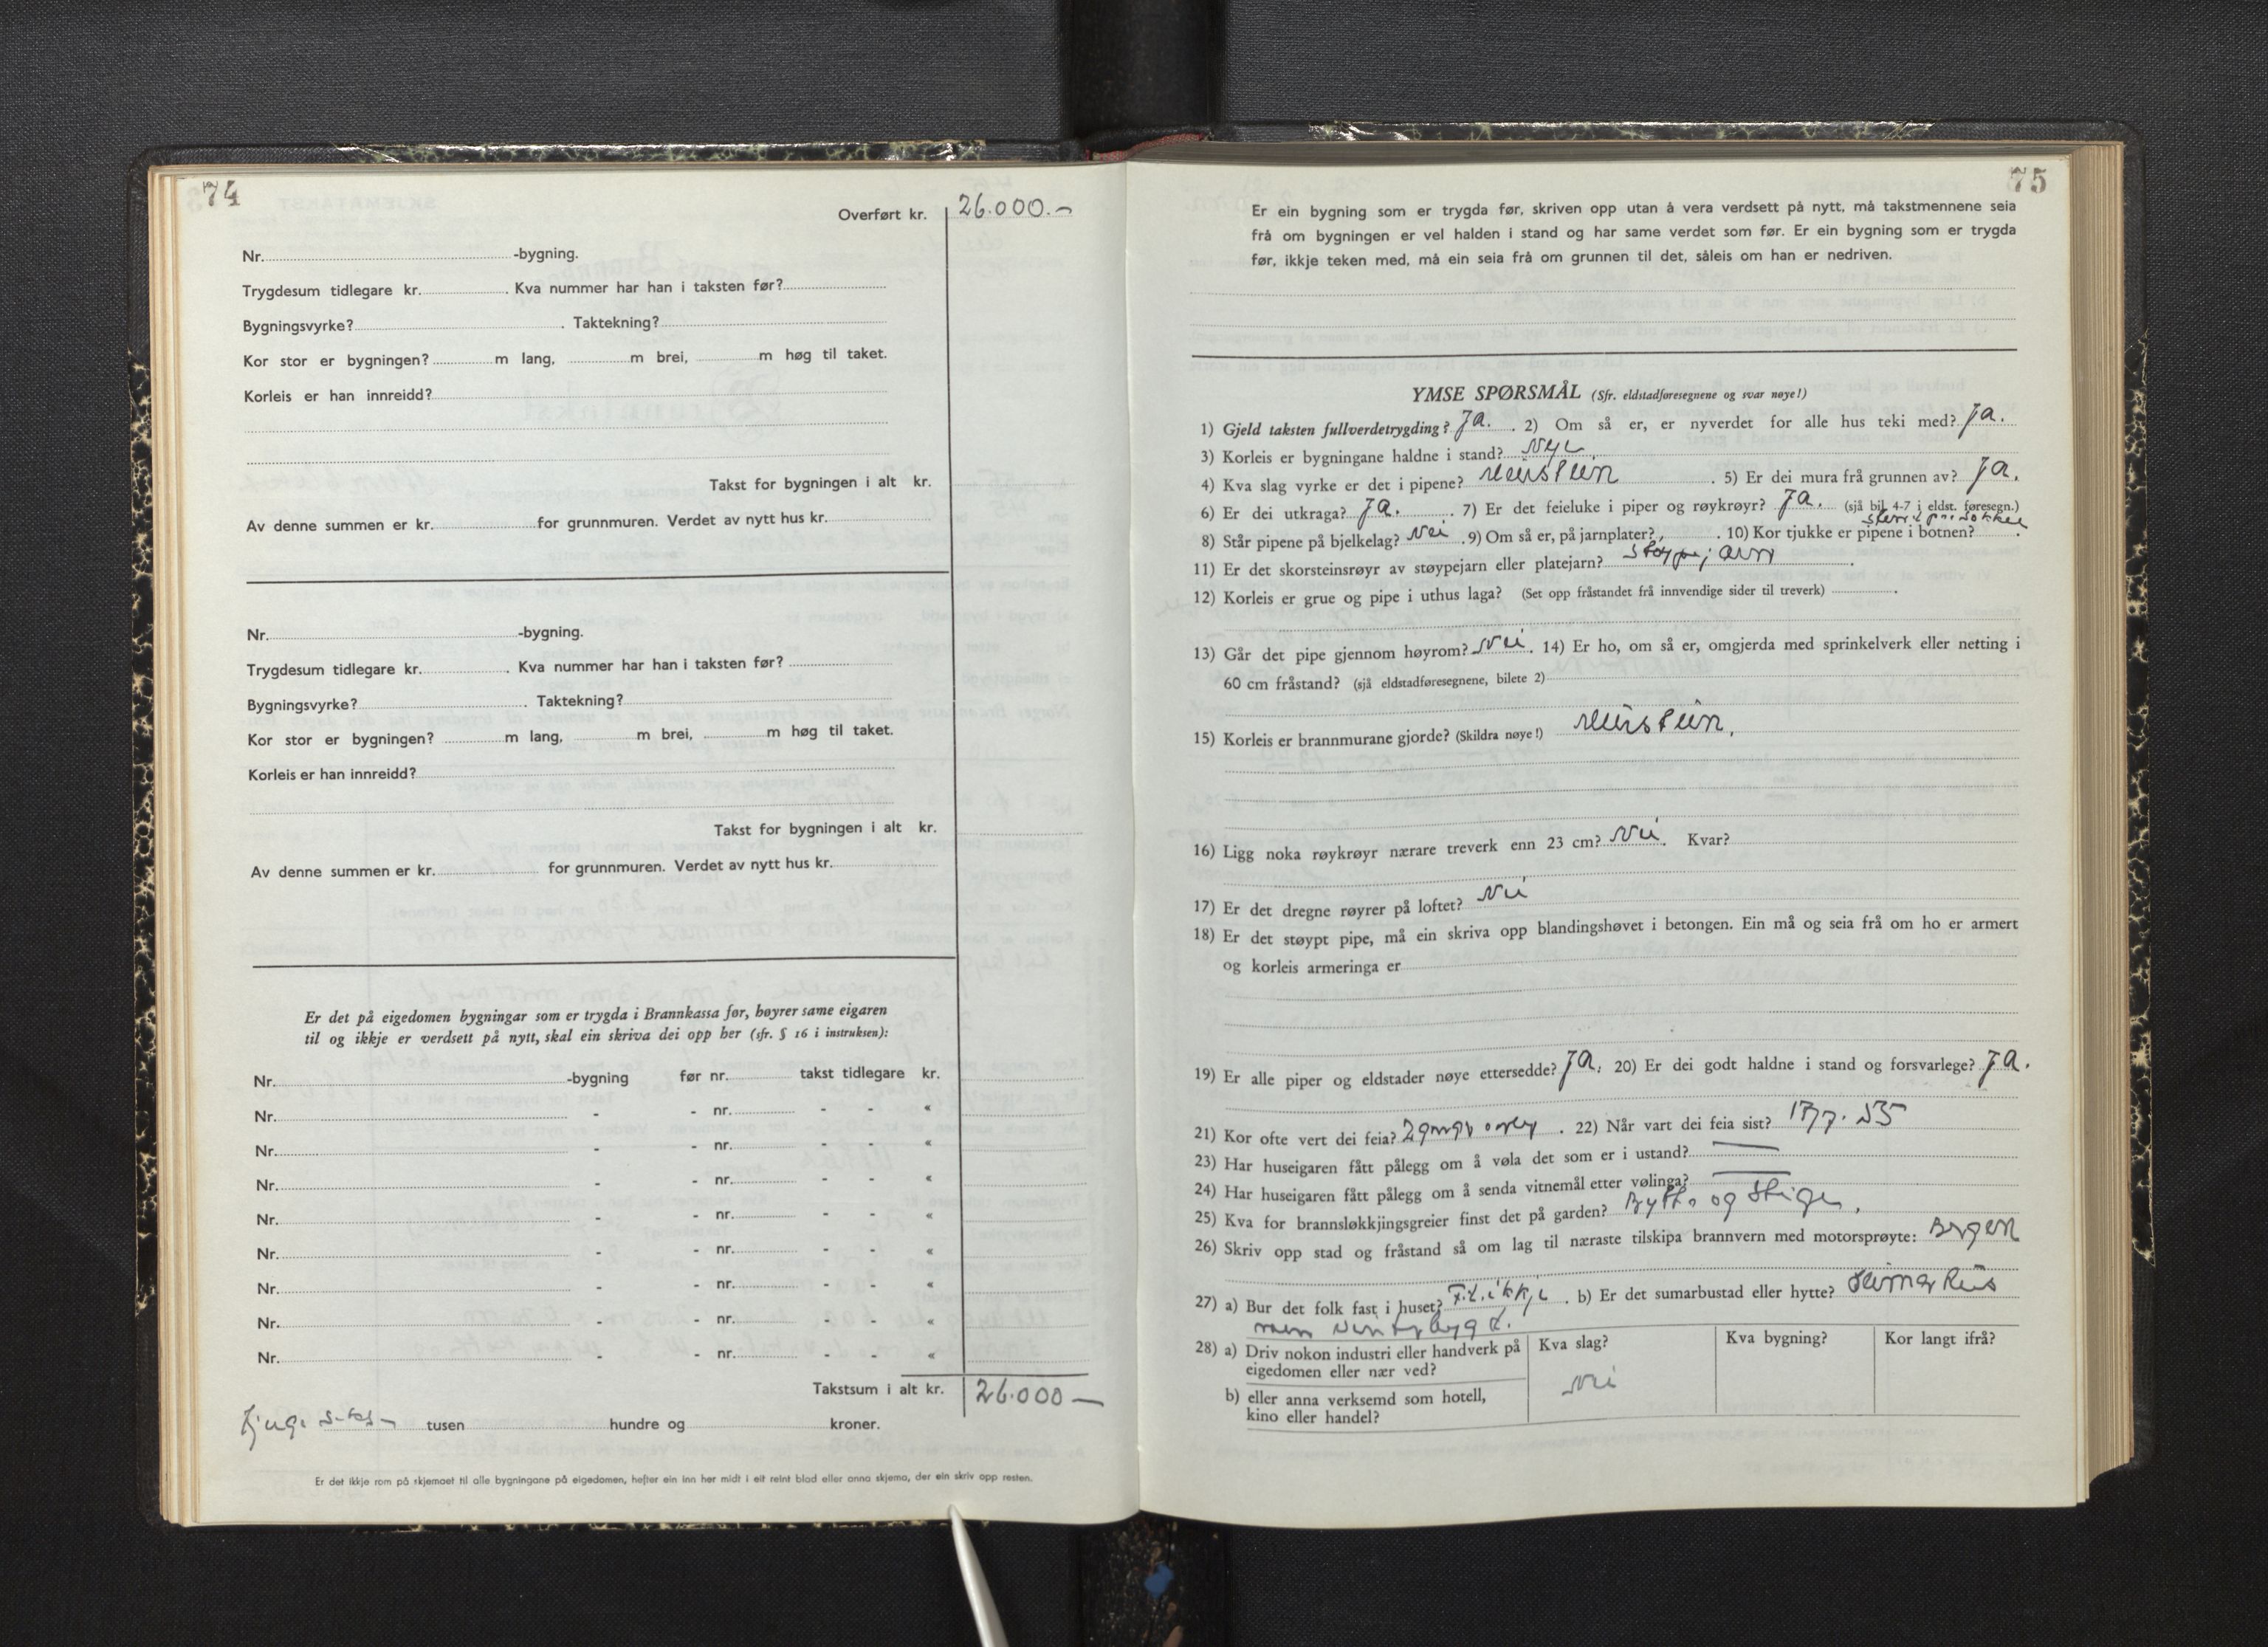 74
Overført kr. 26.000.-
Nr. -bygning.
Trygdesum tidlegare kr. . Kva nummer har han i taksten før?
Bygningsvyrke? . Taktekning?
Kor stor er bygningen? m lang, m brei, m høg til taket.
Korleis er han innreidd?
Takst for bygningen i alt kr.
Av denne summen er kr. for grunnmuren. Verdet av nytt hus kr.
Nr. -bygning.
Trygdesum tidlegare kr. . Kva nummer har han i taksten før?
Bygningsvyrke? . Taktekning?
Kor stor er bygningen? m lang, m brei, m høg til taket.
Korleis er han innreidd?
Takst for bygningen i alt kr.
Av denne summen er kr. for grunnmuren. Verdet av nytt hus kr.
Er det på eigedomen bygningar som er trygda i Brannkassa før, høyrer same eigaren
til og ikkje er verdsett på nytt, skal ein skriva dei opp her (sfr. § 16 i instruksen):
Nr. -bygning før nr. takst tidlegare kr.
Nr. - - nr. - - «
Nr. - - nr. - - «
Nr. - - nr. - - «
Nr. - - nr. - - «
Nr. - - nr. - - «
Nr. - - nr. - - «
Nr. - - nr. - - «
Nr. - - nr. - - «
Takstsum i alt kr. 26.000 -
tusen hundre og kroner.
Er det ikkje rom på skjemaet til alle bygningane på eigedomen, hefter ein inn her midt i eit reint blad eller anna skjema, der ein skriv opp resten.
75
Er ein bygning som er trygda før, skriven opp utan å vera verdsett på nytt, må takstmennene seia
frå om bygningen er vel halden i stand og har same verdet som før. Er ein bygning som er trygda
før, ikkje teken med, må ein seia frå om grunnen til det, såleis om han er nedriven.
YMSE SPØRSMÅL (Sfr. eldstadføresegnene og svar nøye!)
1) Gjeld taksten fullverdetrygding? Ja. . 2) Om så er, er nyverdet for alle hus teki med? Ja.
3) Korleis er bygningane haldne i stand? Nye
4) Kva slag vyrke er det i pipene? Murstein . 5) Er dei mura frå grunnen av? Ja.
6) Er dei utkraga? Ja. . 7) Er det feieluke i piper og røykrøyr? Ja. (sjå bil. 4-7 i eldst. føresegn.)
8) Står pipene på bjelkelag? Nei . 9) Om så er, på jarnplater? . 10) Kor tjukke er pipene i botnen? .
11) Er det skorsteinsrøyr av støypejarn eller platejarn? Støypejarn .
12) Korleis er grue og pipe i uthus laga? (Set opp fråstandet frå innvendige sider til treverk) .
13) Går det pipe gjennom høyrom? Nei . 14) Er ho, om så er, omgjerda med sprinkelverk eller netting i
60 cm fråstand? (sjå eldstadføresegnene, bilete 2)
15) Korleis er brannmurane gjorde? (Skildra nøye!) Murstein.
16) Ligg noka røykrøyr nærare treverk enn 23 cm? Nei . Kvar?
17) Er det dregne røyrer på loftet? Nei
18) Er det støypt pipe, må ein skriva opp blandingshøvet i betongen. Ein må og seia frå om ho er armert
og korleis armeringa er
19) Er alle piper og eldstader nøye ettersedde? Ja. 20) Er dei godt haldne i stand og forsvarlege? Ja.
21) Kor ofte vert dei feia? . 22) Når vart dei feia sist? 17/7. 55
23) Har huseigaren fått pålegg om å vøla det som er i ustand? —
24) Har huseigaren fått pålegg om å senda vitnemål etter vølinga? —
25) Kva for brannsløkkjingsgreier finst det på garden? Bytte og Stige.
26) Skriv opp stad og fråstand så om lag til næraste tilskipa brannvern med motorsprøyte: Bergen
27) a) Bur det folk fast i huset? ikkje . b) Er det sumarbustad eller hytte? Sumarhus
men vinterbygd.
28) a) Driv nokon industri eller handverk på
eigedomen eller nær ved?
b) eller anna verksemd som hotell,
kino eller handel?
Kva slag?
Nei
Kva bygning?
Kor langt ifrå?